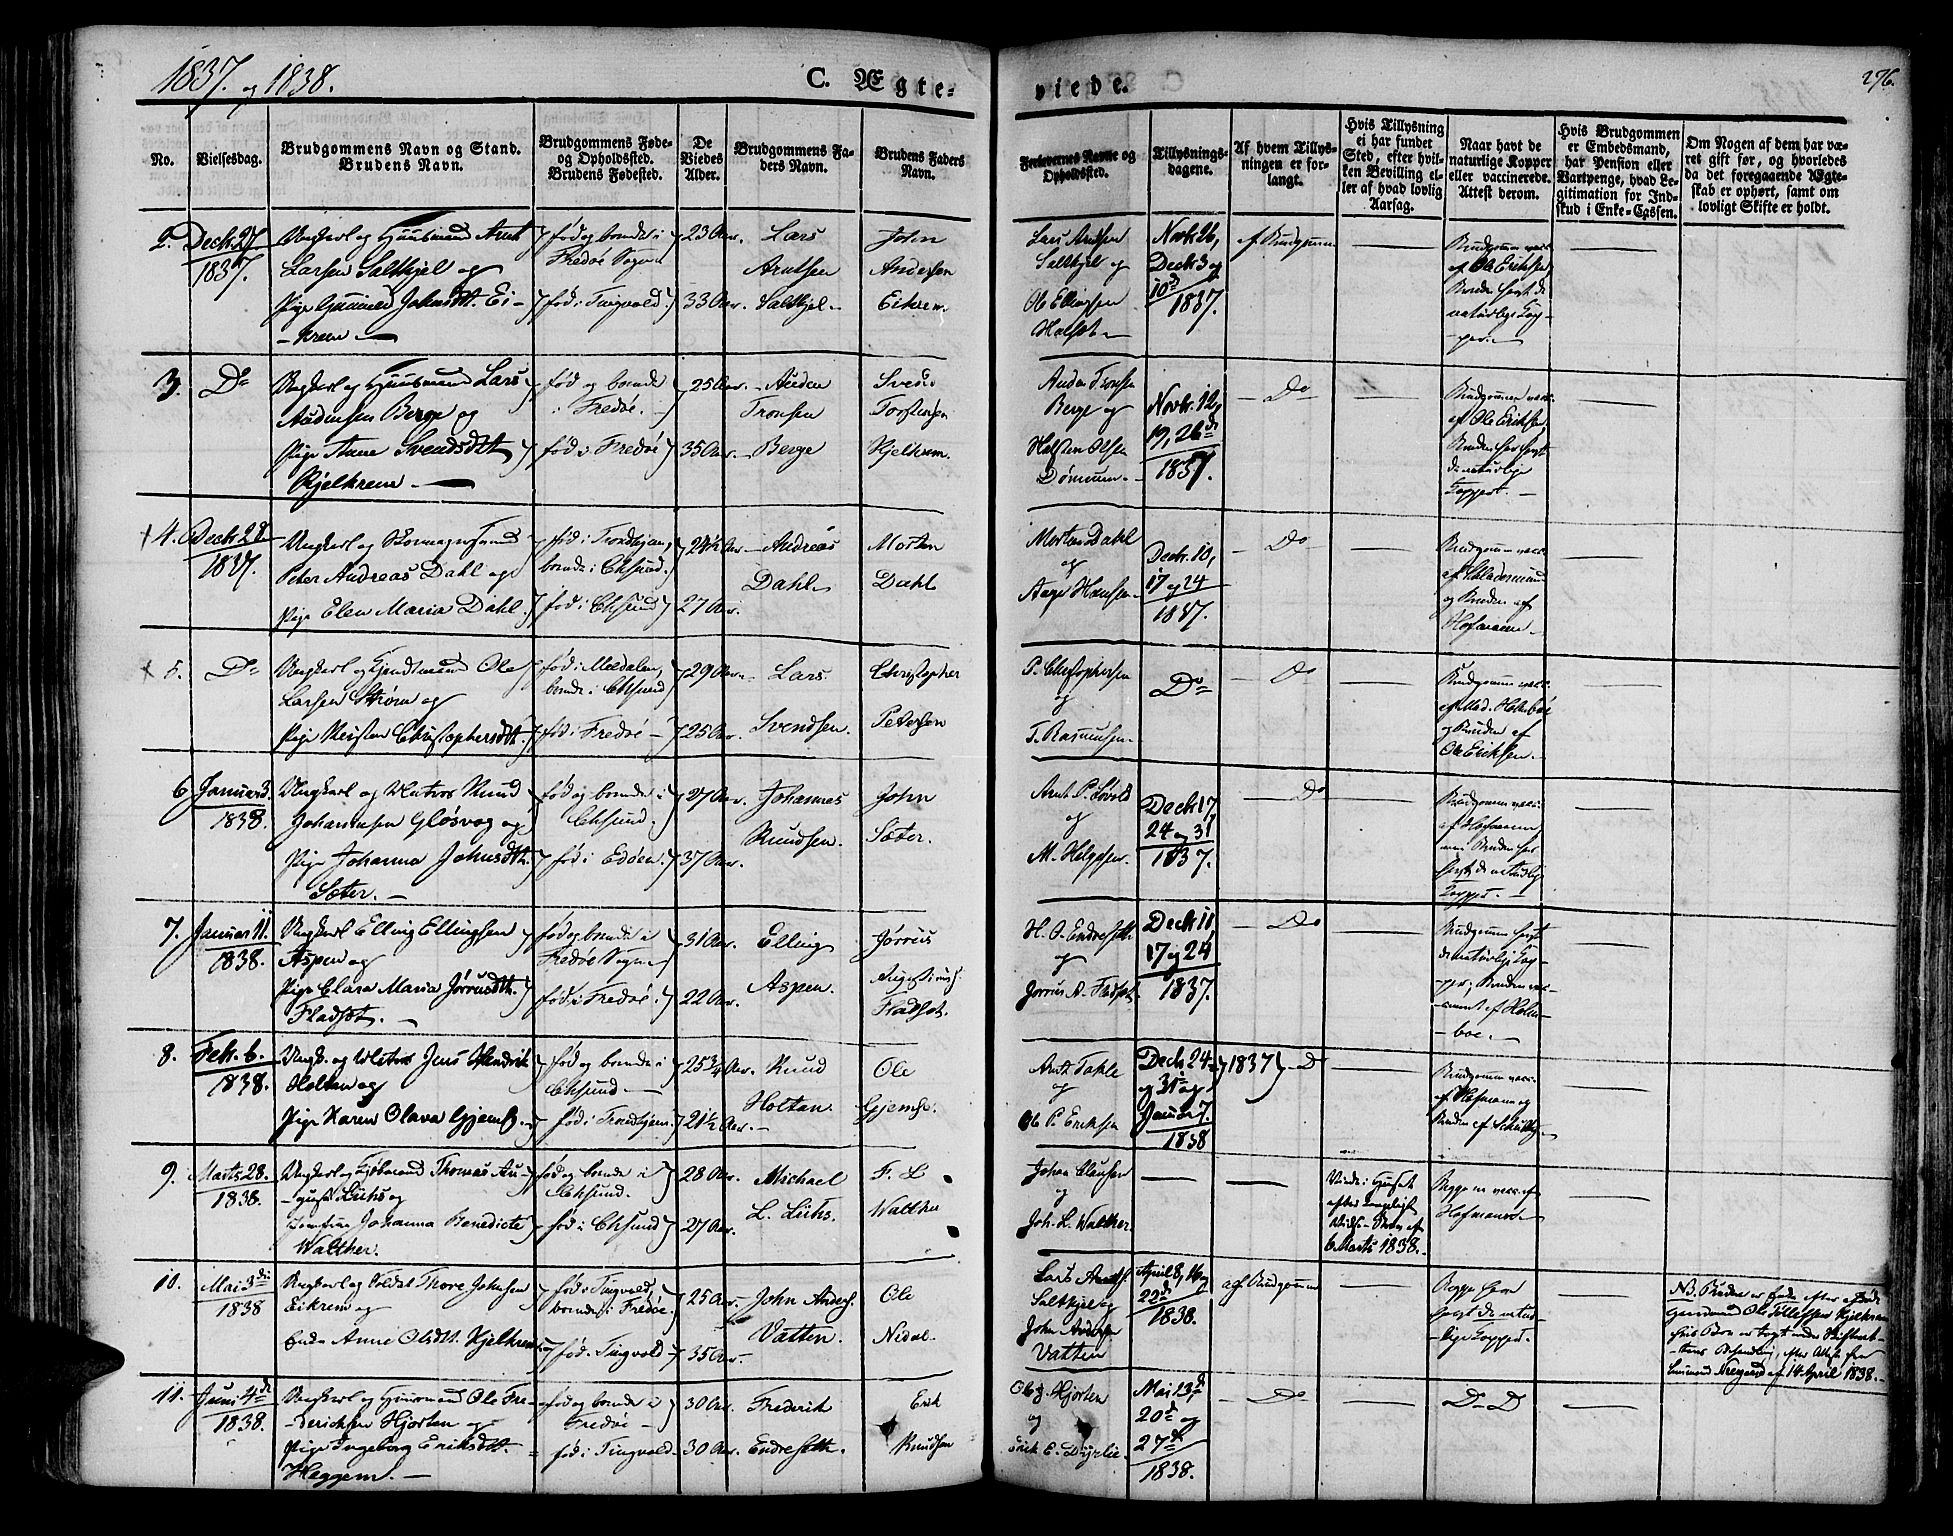 1837. og 1838.
C. Ægte-
viede.
276.
No.
Vielsesdag.
Brudgommens Navn og Stand.
Brudens Navn.
Brudgommens Føde-
og Opholdsted.
Brudens Fødested.
De
Viedes
Alder.
Brudgommens Fa-
ders Navn.
Brudens Faders
Navn.
Forlovernes Navne og
Opholdssted.
Tillysnings-
dagene.
Af hvem Tillys-
ningen er for-
langt.
Hvis Tillysning
ei har fundet
Sted, efter hvil-
ken Bevilling el-
ler af hvad lovlig
Aarsag.
Naar havt de
naturlige Kopper
eller vaccinerede.
Attest derom.
Hvis Brudgommen
er Embedsmand,
har Pension eller
Vartpenge, hvad Le-
gitimation for Ind-
skud i Enke-Cassen.
Om Nogen af dem har væ-
ret gift før, og hvorledes
da det foregaaende Ægte-
skab er ophørt, samt om
lovligt Skifte er holdt.
2. Decb. 27
1837.
Ungkarl og Huusmand Arnt
Larsen Saltkjel og
Pige Gunnild Johnsdt. Ei-
krem
fød og boende i
Fredøe Sogn
fød i Tingvold
23 Aar.
33 Aar
Lars
Arntsen
Saltkjel
John
Andersen
Eikrem
Lars Arntsen
Saltkjel og
Ole Ellingsen
Novb. 26,
Decb. 3 og
10d
1837.
af Brudgommen
Brudgommen vacc.
af Ole Eriksen,
Bruden havt de
naturlige Kop-
per.
3. Do
Ungkarl og Huusmand Lars
Audensen Berge og
Pige Anne Svendsdtt
Kjelkrem
fød og boende
i Fredøe.
fød i Fredøe
25 Aar.
35 Aar.
Auden
Tronsen
Berge
Svend
Torstensen
Kjelkrem.
Auden Tronsen
Berge og
Halsten Olsen
Novbr. 12,
19, 26de
1837.
Do
Brudgommen vacc.
af Ole Eriksen,
Bruden har havt
de naturlige
Kopper.
4. Decb. 28
1837.
Ungkarl og
Peter Andreas Dahl og
Pige Elen Maria Dahl.
fød i Trondhjem,
boende i Chsund.
fød i Chsund
24½ Aar.
27 Aar.
Andreas
Dahl
Morten
Dahl
Morten Dahl
og
Aage Hansen
Decbr. 10,
17 og 24
1837.
Do
Brudgommen vacc.
og Bruden af
Hofmann
5. Do
Ungkarl og Ole
Larsen Strøm og
Pige Kirsten Christophersdt.
fød i Meldalen,
boende i Chsund
fød i Fredøe
29 Aar.
25 Aar.
Lars
Svendsen.
Christopher
Petersen
P. Christophersen
og
T. Rasmussen
Do
Do
Brudgommen vacc.
og Bruden af
Ole Eriksen.
6 Januar 3.
1838.
Ungkarl og Matros Knud
Johannesen Gløsvog og
Pige Johanna Johnsdtt.
Sæter.
fød og boende i
Chsund.
fød i Edøen.
27 Aar.
37 Aar.
Johannes
Knudsen.
John
Sæter.
Arnt P. Løvold
og
M. Helgesen.
Decb. 17
24 og 31
1837.
Do
Brudgommen vacc.
af Hofmann,
men Bruden har
havt de naturlige
Kopper.
7. Januar 11.
1838.
Ungkarl Elling Ellingsen
Aspen og
Pige Clara Maria Jørrusdtt.
Fladset.
fød og boende i
Fredøe Sogn
fød i Fredøe
31 Aar.
22 Aar.
Elling
Aspen.
Jørrus
Augustinus.
Fladset.
H. O. Endreset.
og
Jørrus A. Fladset.
Decb. 11,
17 og 24
1837.
Do
Brudgommen havt
de naturlige Kop-
per, Bruden vac-
cineret af Holm-
boe.
8. Febr. 6.
1838.
Ungk. og Matros Jens Hendrik
Holten og
Pige Karen Olava Gjems.
fød og boende i
Chsund
fød i Trondhjem.
25¾ Aar.
21½ Aar.
Knud
Holtan.
Ole
Gjems.
Arnt Tahle
og
Ole P. Eriksen
Decb. 24
og 31 og
Januar 7.
1838
1837
Do
Brudgommen vacc.
af Hofmann og
Bruden af
9. Marts 28.
1838.
Ungkarl og Thomas Au-
gust Lühs og
Jomfrue Johanna Benedicte
Walther.
fød og boende i
Chsund.
fød i Chsund
28 Aar.
27 Aar.
Michael
L. Lühs.
F. L
Walther
Johan Clausen
og
Joh. L. Walther.
Viede i Huset
efter kongeligt
6 Marts 1838.
Begge vacc. af
Hofmann
10. Mai 3die
1838
Ungkarl og Soldat Thore Johnsen
Eikrem og
Enke Anne Olsdtt. Kjelkrem
fød i Tingvold,
boende i Fredøe.
fød i Tingvold
25 Aar
35 Aar
John Anders.
Vatten.
Ole
Nidal.
Lars Arnts.
Saltkjel og
John Anders
Vatten
April 8, 16 og
22de
1838.
af Brudgommen
Begge have
havt de natur-
lige Kopper.
NB. Bruden er Enke efter
Ole Tillefsen Kjelkrem
14 April 1838.
11. Juni 4de
1838.
Ungkarl og Huusmand Ole Fre-
deriksen Hjorten og
Pige Ingeborg Eriksdtt.
Heggem.
fød og boende i
Fredøe
fød i Tingvold
30 Aar.
30 Aar.
Frederik
Endreseth.
Erik
Knudsen
Hjorten
og
Erik E. Dyrlie.
Mai 13de
20de og
27de
1838.
Do
Do Do